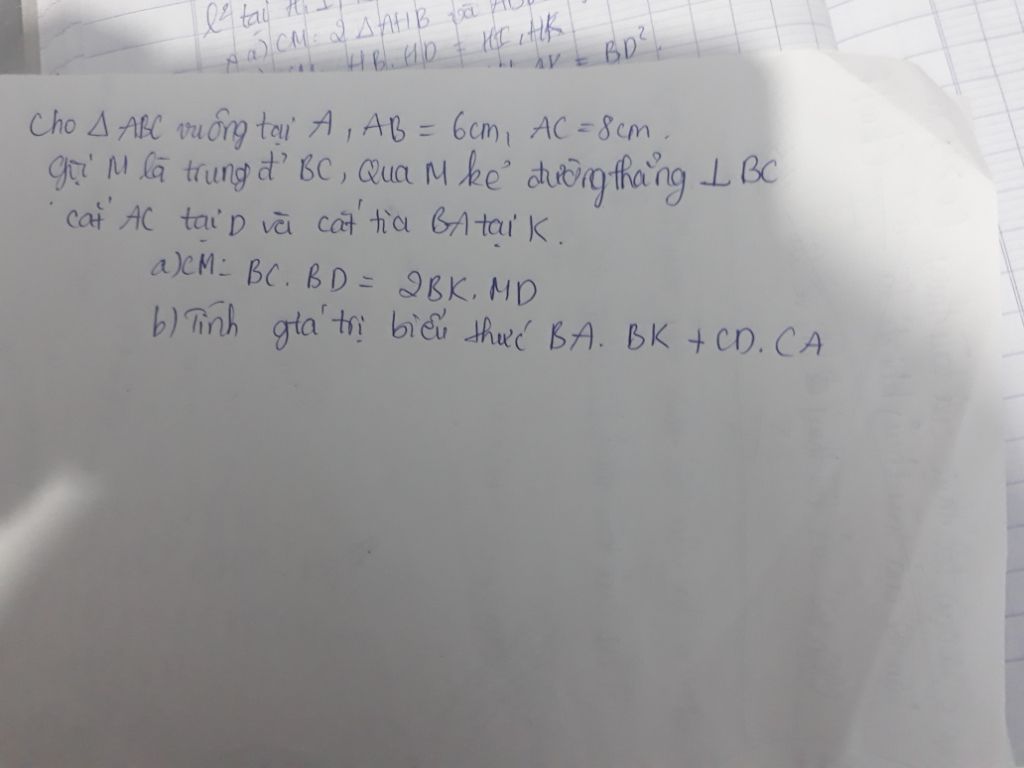 l² tại H, I
a) CM: 2 ΔAHB và
HB. HD = HI. HK
= BD²
Cho Δ ABC vuông tại A, AB = 6cm, AC = 8cm.
gọi M là trung đ' BC, Qua M kẻ đường thẳng ⊥ BC
cắt AC tại D và cắt tia BA tại K.
a) CM: BC. BD = 2BK. MD
b) Tính giá trị biểu thức BA. BK + CD. CA